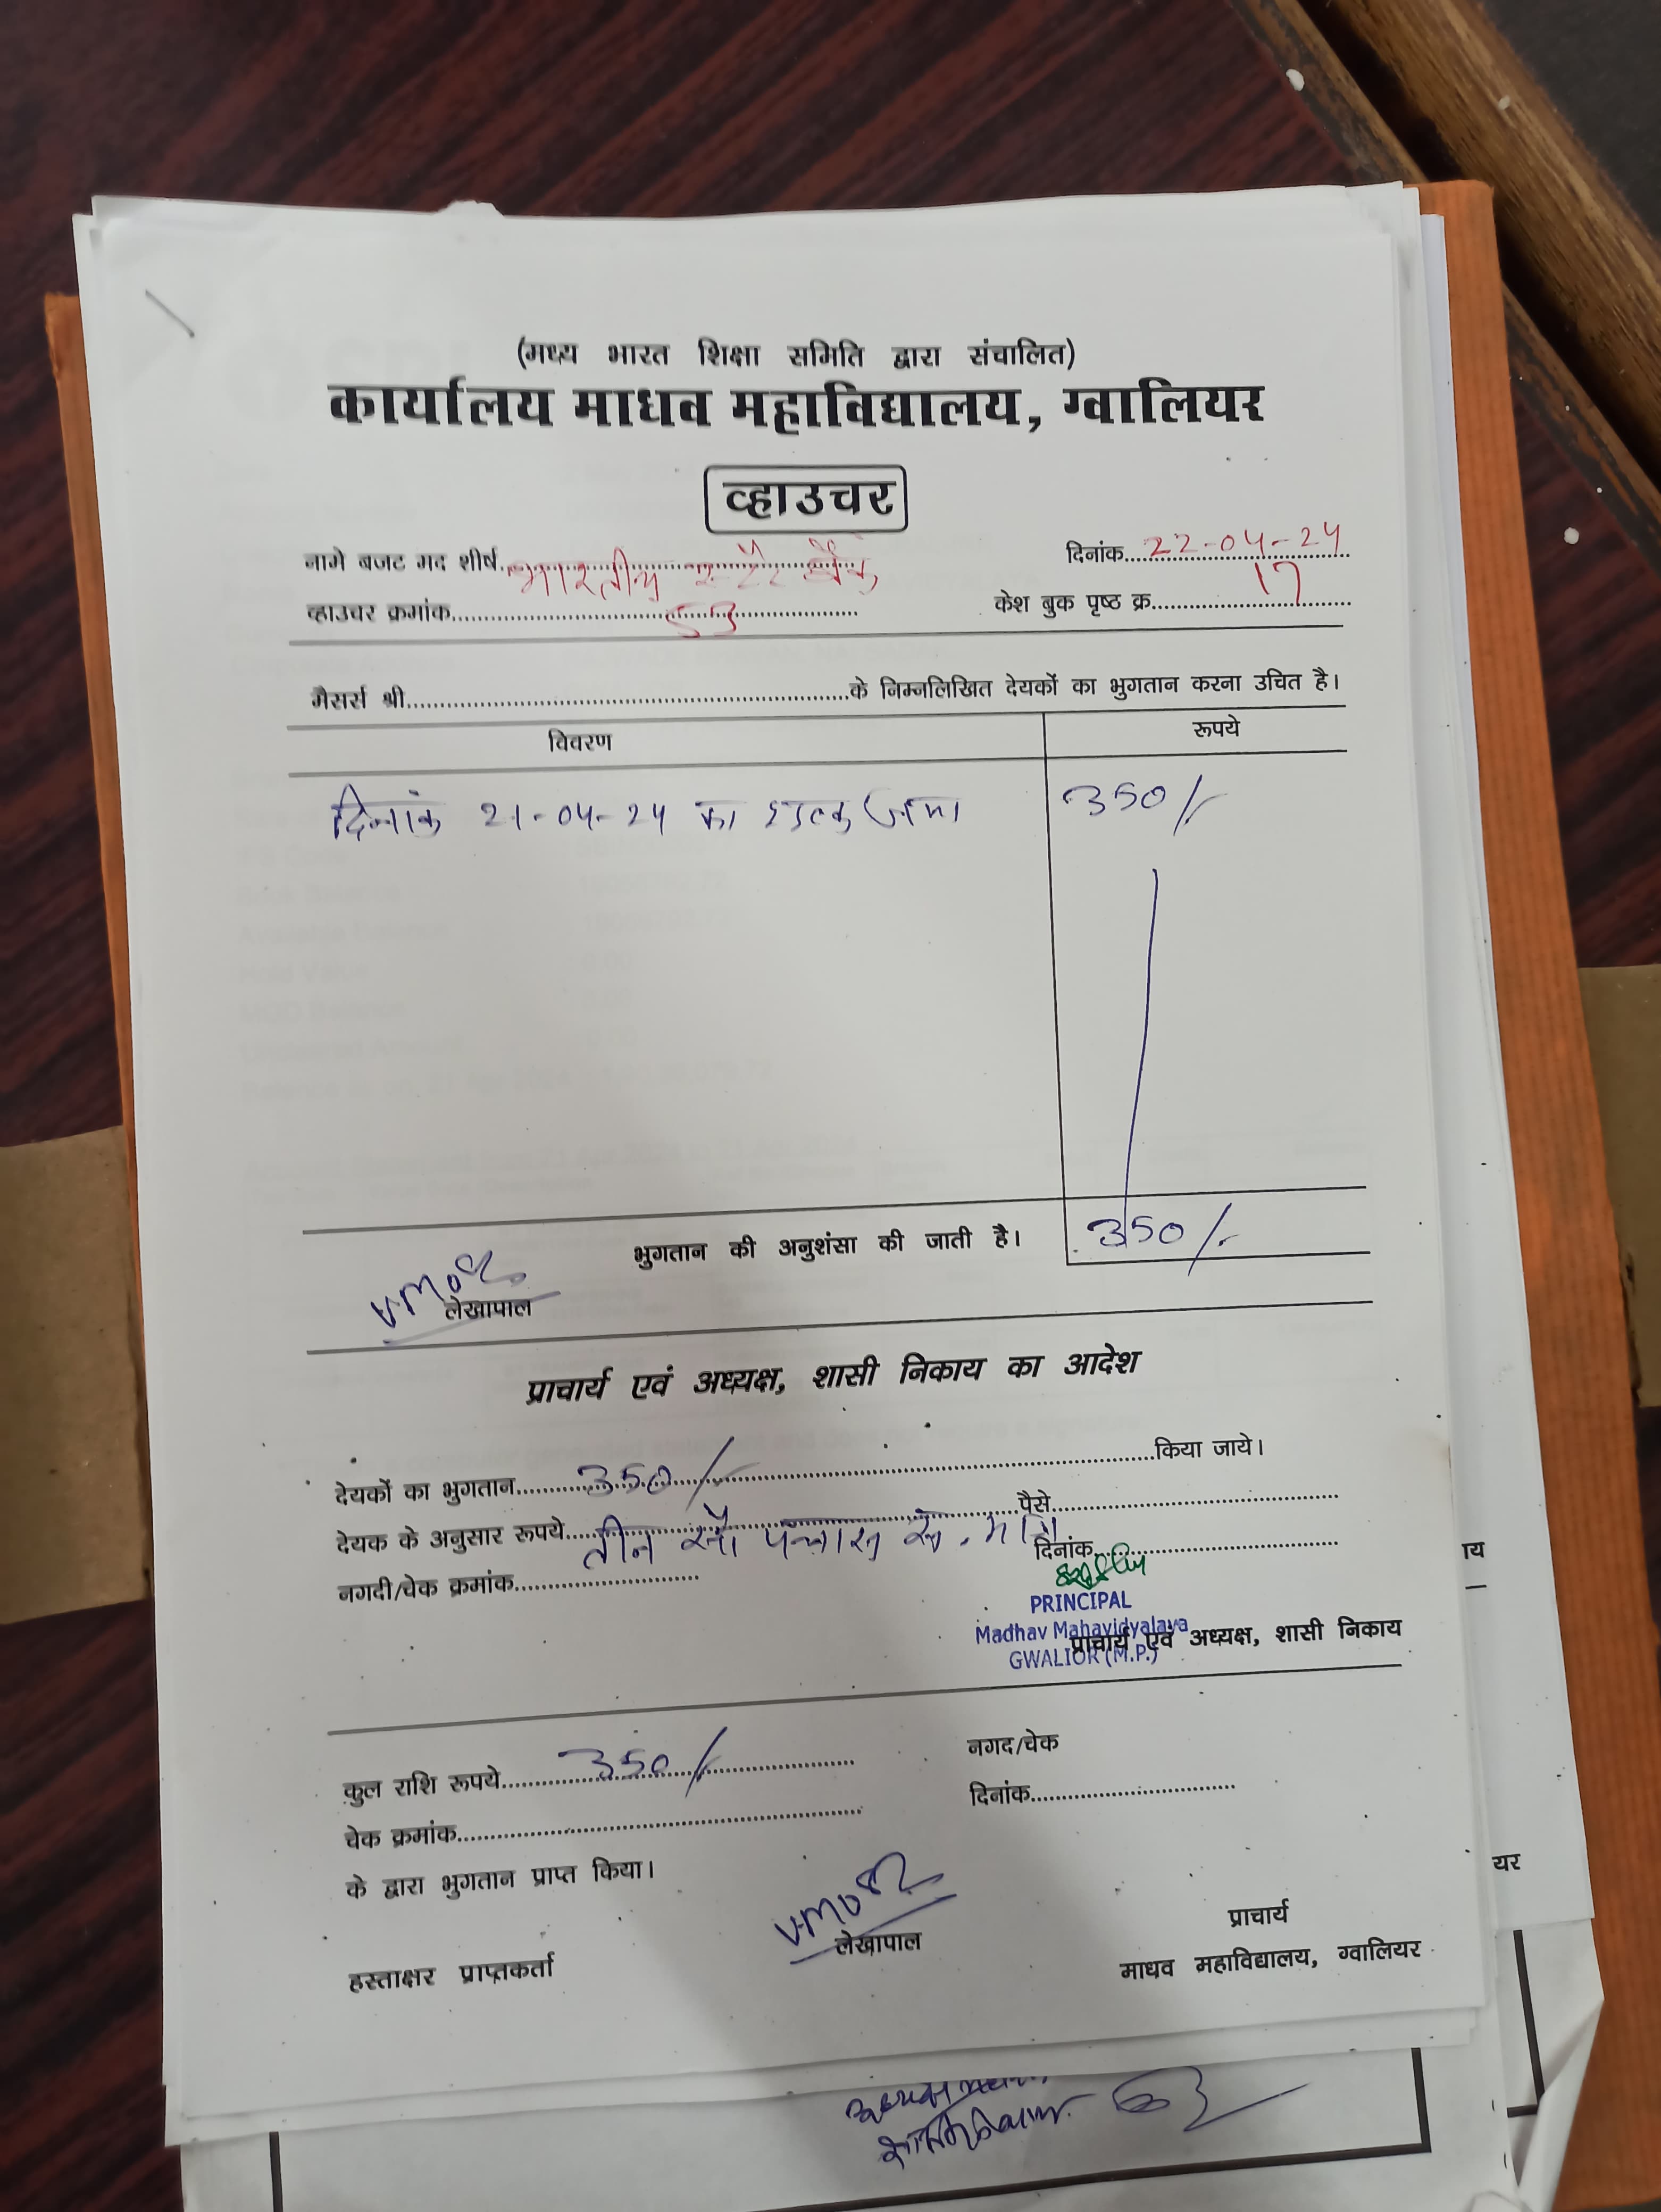 (मध्य भारत शिक्षा समिति द्वारा संचालित)
कार्यालय माधव महाविद्यालय, ग्वालियर
व्हाउचर
नामे बजट मद शीर्ष भारतीय स्टेट बैंक दिनांक 22-04-24
व्हाउचर क्रमांक 53 केश बुक पृष्ठ क्र. 17
मैसर्स श्री के निम्नलिखित देयकों का भुगतान करना उचित है।
विवरण रूपये
दिनांक 21-04-24 का शुल्क जमा 350/-
भुगतान की अनुशंसा की जाती है। 350/-
लेखापाल
प्राचार्य एवं अध्यक्ष, शासी निकाय का आदेश
देयकों का भुगतान 350/- किया जाये।
देयक के अनुसार रूपये तीन सौ पचास रू. मात्र पैसे
नगदी/चेक क्रमांक दिनांक
PRINCIPAL
Madhav Mahavidyalaya
GWALIOR (M.P.)
प्राचार्य एवं अध्यक्ष, शासी निकाय
कुल राशि रूपये 350/- नगद/चेक
चेक क्रमांक दिनांक
के द्वारा भुगतान प्राप्त किया।
हस्ताक्षर प्राप्तकर्ता लेखापाल प्राचार्य
माधव महाविद्यालय, ग्वालियर